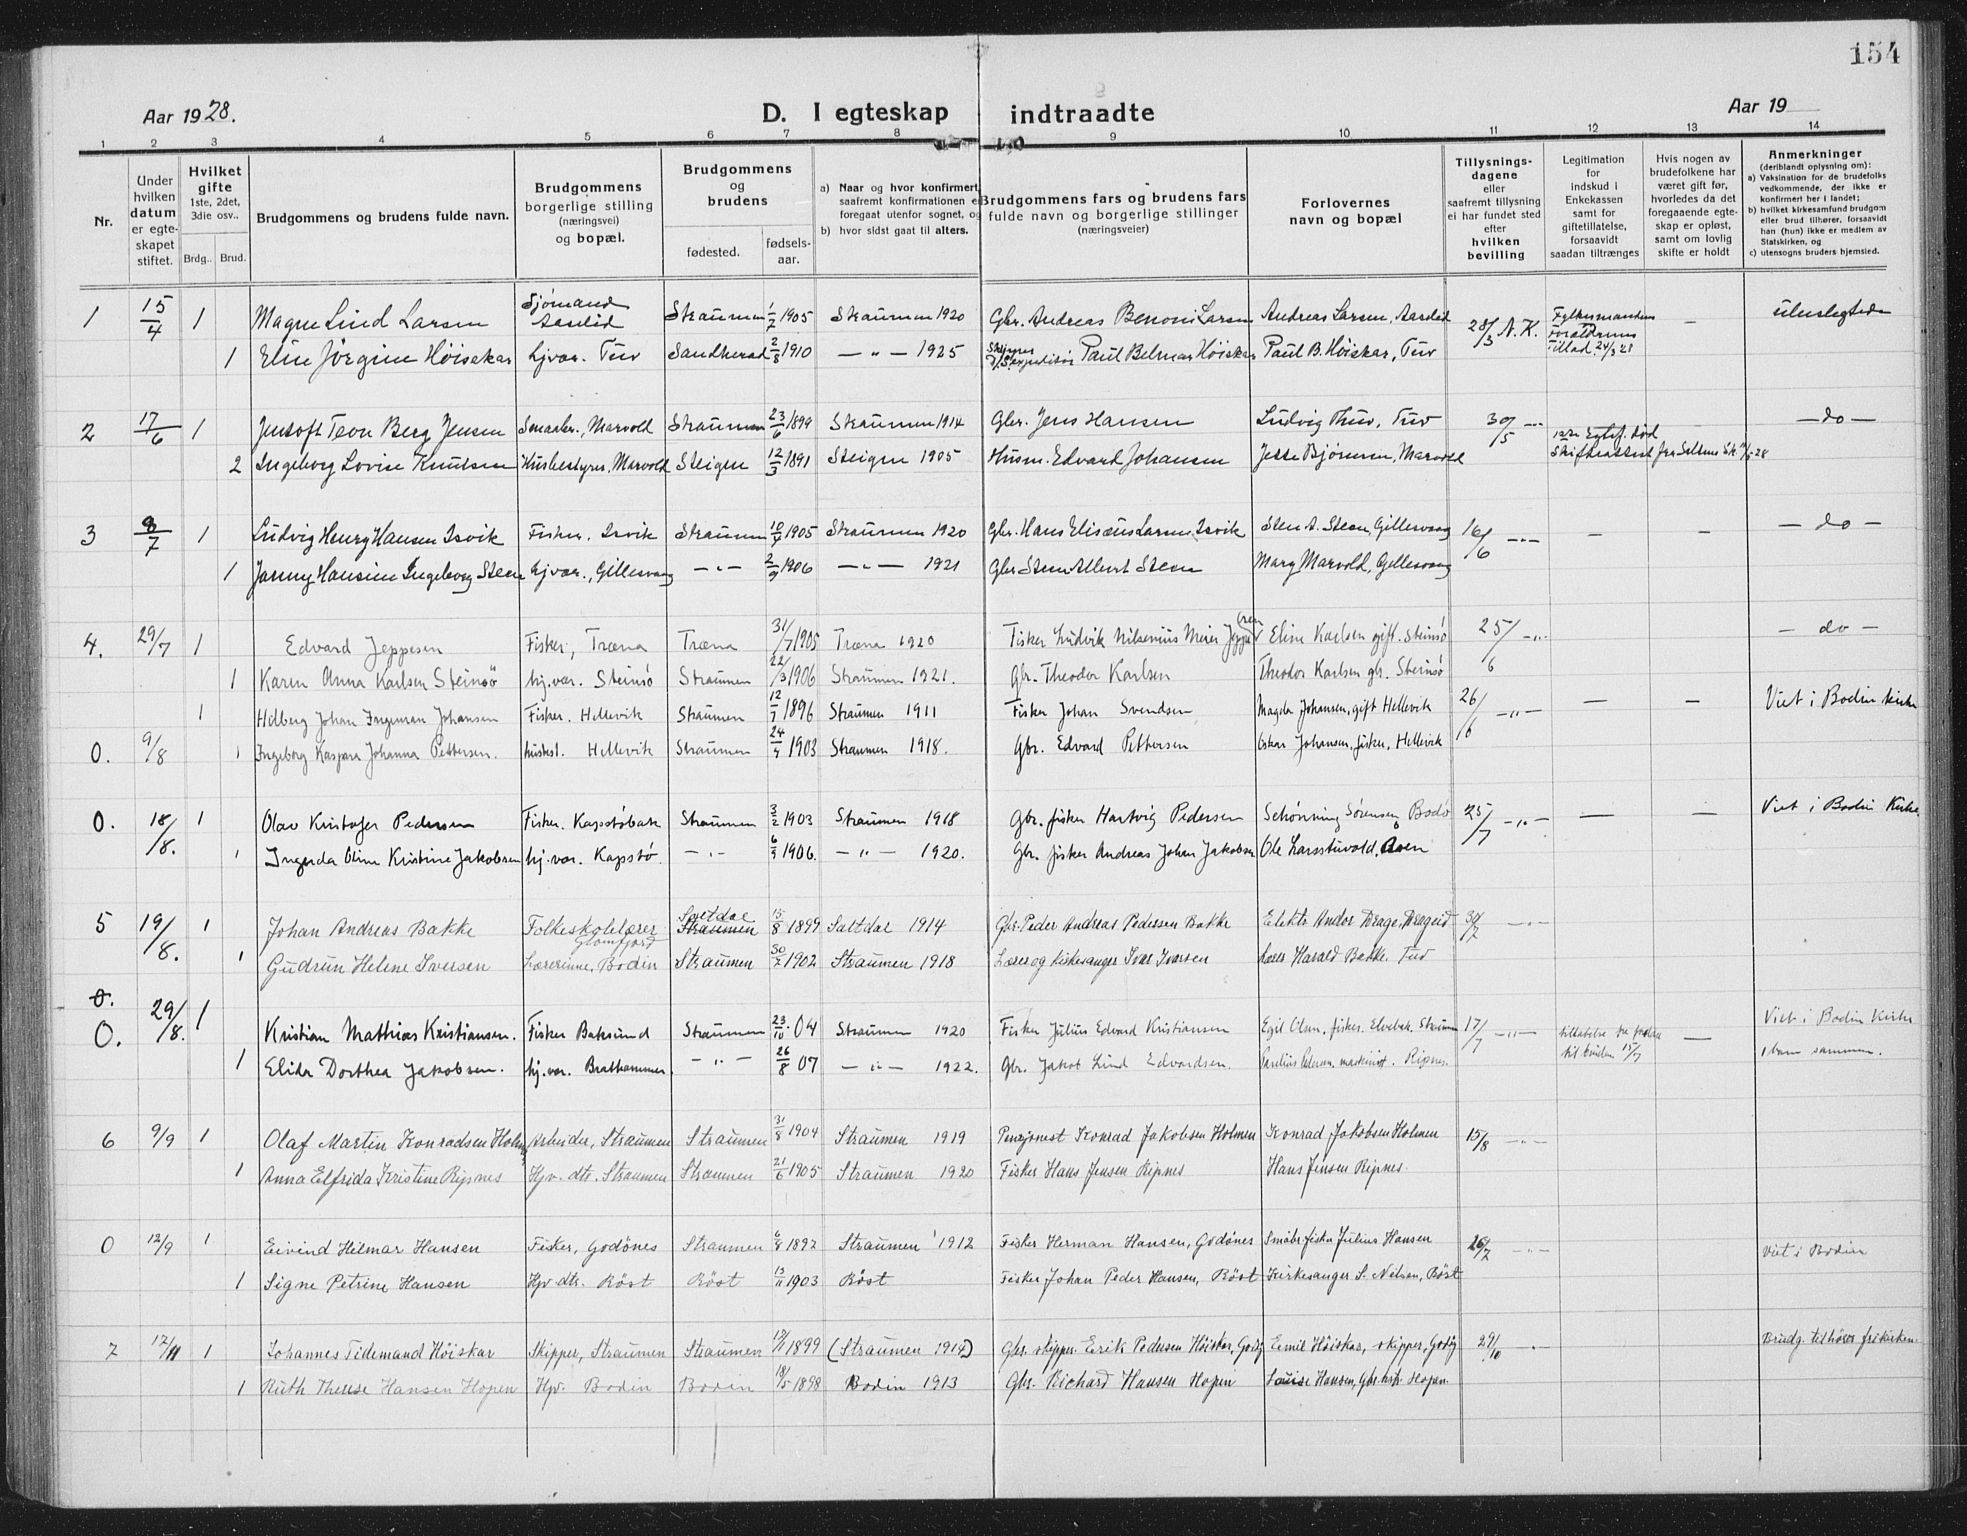 154
Aar 1928.
D. I egteskap indtraadte
Aar 19
1 2 3 4 5 6 7 8 9 10 11 12 13 14
Nr.
Under hvilken datum er egteskapet stiftet.
Hvilket gifte 1ste, 2det, 3die osv..
Brdg.. Brud.
Brudgommens og brudens fulde navn.
Brudgommens borgerlige stilling (næringsvei) og bopæl.
Brudgommens og brudens
fødested.
fødselsaar.
a) Naar og hvor konfirmert, saafremt konfirmationen er foregaat utenfor sognet, og
b) hvor sidst gaat til alters.
Brudgommens fars og brudens fars fulde navn og borgerlige stillinger (næringsveier)
Forlovernes navn og bopæl
Tillysningsdagene eller saafremt tillysning ei har fundet sted efter hvilken bevilling
Legitimation for indskud i Enkekassen samt for giftetillatelse, forsaavidt saadan tiltrænges
Hvis nogen av brudefolkene har været gift før, hvorledes da det foregaaende egteskap er opløst, samt om lovlig skifte er holdt
Anmerkninger (deriblandt oplysning om):
a) Vaksination for de brudefolks vedkommende, der ikke er konfirmert her i landet;
b) hvilket kirkesamfund brudgom eller brud tilhører, forsaavidt han (hun) ikke er medlem av Statskirken, og
c) utensogns bruders hjemsted.
1 15/4 1 Magne Lind Larsen Sjømand Aaselid Straumen 1/7 1905 Straumen 1920 Gbr. Andreas Benoni Larsen Andreas Larsen, Aaselid 28/3 N.K. Fylkesmandens Tillad. 24/3 28 — ubeslegtede
1 Elin Jørgine Høiskar hj.var. Tuv Sandherad 2/8 1910 —„— 1925 Paul Belmar Høiskar Paul B. Høiskar, Tuv
2 17/6 1 Jentoft Teon Berg Jensen Smaabr., Marvold Straumen 23/6 1899 Straumen 1914 Gbr. Jens Hansen Ludvig Thuv, Tuv 30/5 —„— —do—
2 Ingeborg Lovise Knutsen Husbestyrer, Marvold Steigen 12/3 1891 Steigen 1905 Husm. Edvard Johansen Bjørnsen, Marvold
3 8/7 1 Ludvig Henry Hansen Isvik Fisker. Isvik Straumen 10/7 1905 Straumen 1920 Gbr. Hans Elisæus Larsen, Isvik Sten A. Steen, Gillesvaag 16/6 —„— — — —do—
1 Janny Hansine Ingeborg Steen hj.var., Gillesvaag —„— 2/9 1906 —„— 1921 Gbr Steen Albert Steen Mary Marvold, Gillesvaag
4. 29/7 1 Edvard Jeppesen Fisker, Træna Træna 31/7 1905 Træna 1920 Fisker Ludvik Nilsenius Meier Jeppesen Eline Karlsen gift. Steinsö 25/6 —„— —do—
1 Karen Anna Karlsen Steinsö hj.var. Steinsö Straumen 22/3 1906 Straumen 1921. Gbr. Theodor Karlsen Theodor Karlsen gbr. Steinsö
1 Hilberg Johan Ingeman Johansen Fisker. Hellevik Straumen 12/7 1896 Straumen 1911 Fisker Johan Svendsen Magda Johansen, gift Hellevik 26/6 —„— — — Viet i Bodin kirke
0. 9/8 1 Ingeborg Kaspara Johanna Pettersen. husbest. Hellevik Straumen 24/4 1903 Straumen 1918. Gbr. Edvard Pettersen Oskar Johansen, fisker, Hellevik
0. 18/8. 1 Olav Kristofer Pedersen Fisker. Kapstøbak Straumen 3/2 1903 Straumen 1918 Gbr. fisker Hartvig Pedersen Schönning Sörensen Bodö 25/7 —„— — — Viet i Bodin Kirke
1 Ingerda Oline Kristine Jakobsen hj.var. Kapstø. —„— 6/9 1906. —„— 1920. Gbr. fisker Andreas Johan Jakobsen Ole Larsstuvold, Aasen
5 19/8. 1 Johan Andreas Bakke Folkeskolelærer Glomfjord Saltdal Straumen 15/8 1899 Saltdal 1914 Gbr. Peder Andreas Pedersen Bakke Elektr. Andor Drage, Drageid 30/7 —„—
1 Gudrun Helene Iversen Lærerinne, Bodin Straumen 30/7 1902 Straumen 1918 Lærer og kirkesanger Ivar Iversen Lærer Harald Bakke. Tuv
0.
0. 29/8. 1 Kristian Mathias Kristiansen. Fisker Baksund Straumen 23/10 04 Straumen 1920 Fisker Julius Edvard Kristiansen Egil Olsen, fisker. Elvebak. Straumen 17/7 —„— til bruden 15/7 — Viet i Bodin Kirke
1 Elida Dorthea Jakobsen. hj.var. Brathammer. —„— 26/8 07 —„— 1922. Gbr. Jakob Lind Edvardsen. maskinist. Ripnes. 1 barn sammen.
6 9/9 1 Olaf Martin Konradsen Holmen Arbeider, Straumen Straumen 31/8 1904 Straumen 1919 Pensjonist Konrad Jakobsen Holmen Konrad Jakobsen Holmen 15/8 —„—
1 Anna Elfrida Kristine Ripnes Hjv. dtr. Straumen Straumen 21/6 1905 Straumen 1920 Fisker Hans Jensen Ripnes Hans Jensen Ripnes.
0 12/9 1 Eivind Hilmar Hansen Fisker, Godönes Straumen 6/8 1892 Straumen 1912 Fisker Herman Hansen, Godönes Småbr. fisker Julius Hansen 26/7 —„— Viet i Bodin
1 Signe Petrine Hansen Hjv. dtr. Röst Röst 13/11 1903 Röst Fisker Johan Peder Hansen, Röst Kirkesanger S. Nilsen, Röst
7 12/11 1 Johannes Tidemand Höiskar Skipper, Straumen Straumen 17/11 1899 (Straumen 1914) Gbr. skipper Erik Pedersen Höiskar, Godöy Emil Höiskar, skipper, Godöy 29/10 —„— Brudg. tilhører frikirken.
1 Ruth Therese Hansen Hopen Hjv. Bodin Bodin 18/5 1898 Bodin 1913 Gbr. Richard Hansen Hopen Louise Hansen, Gbr. hstr. Hopen.